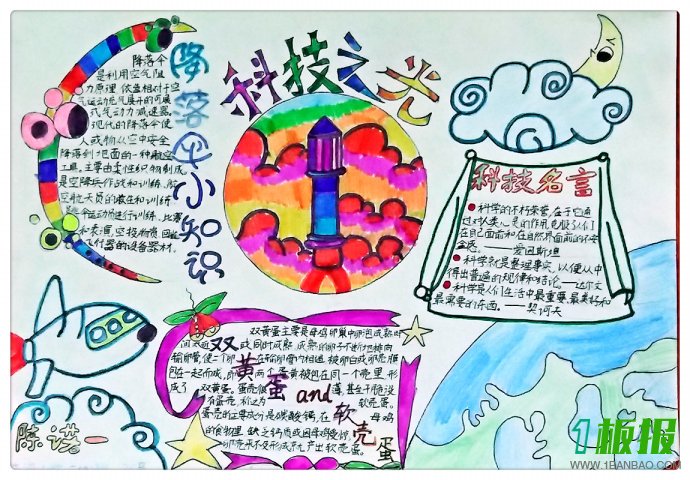 科技之光
降落伞小知识
降落伞
是利用空气阻
力原理,依靠相对于空
气运动充气展开的可展
式气动力减速器,
现代的降落伞使
人或物从空中安全
降落到地面的一种航空
工具。主要由柔性织物制成。
是空降兵作战和训练、航
空航天员的救生和训练
跳伞运动员进行训练、比赛
和表演,空投物质、回收
飞行器的设备器材。
科技名言
科学的不朽荣誉,在于它通
过对人类心灵的作用,克服了人们
在自己面前和在自然界面前的不安
全感。
爱因斯坦
科学就是整理事实,以便从中
得出普遍的规律和结论——达尔文
科学是人们生活中最重要、最美好和
最需要的东西。——契诃夫
双黄蛋and软壳蛋
双黄蛋主要是母鸡卵巢中卵泡成熟时
间
或同时成熟,成熟的卵子不断地排向
输卵管,使二个卵
在输卵管内相遇,被卵白或卵壳膜
包在一起而成,
两个蛋黄被包在同一个壳里,形
成了
双黄蛋。
软壳蛋。
蛋壳的主要成分是碳酸钙,在
母鸡
的食物里,缺乏钙质或因母鸡受惊,
卵壳来不及形成就产出软壳蛋。
陈诺一
1板报
WWW.1BANBAO.COM